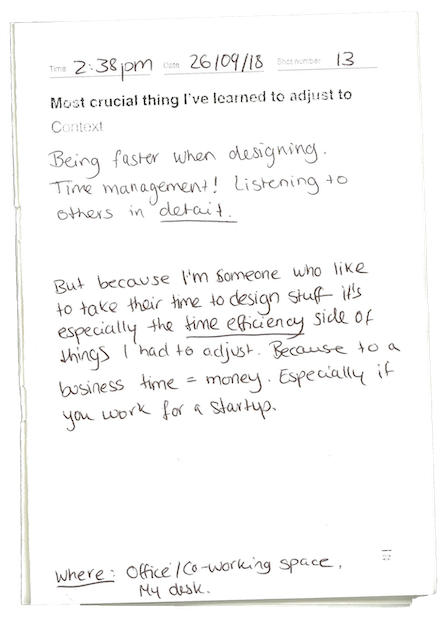 Time 2:38pm Date 26/09/18 Shot number 13
Most crucial thing I've learned to adjust to
Context
Being faster when designing.
Time management! Listening to
others in detail.
But because I'm someone who like
to take their time to design stuff it's
especially the time efficiency side of
things I had to adjust. Because to a
business time = money. Especially if
you work for a startup.
where: Office/Co-working space,
My desk.